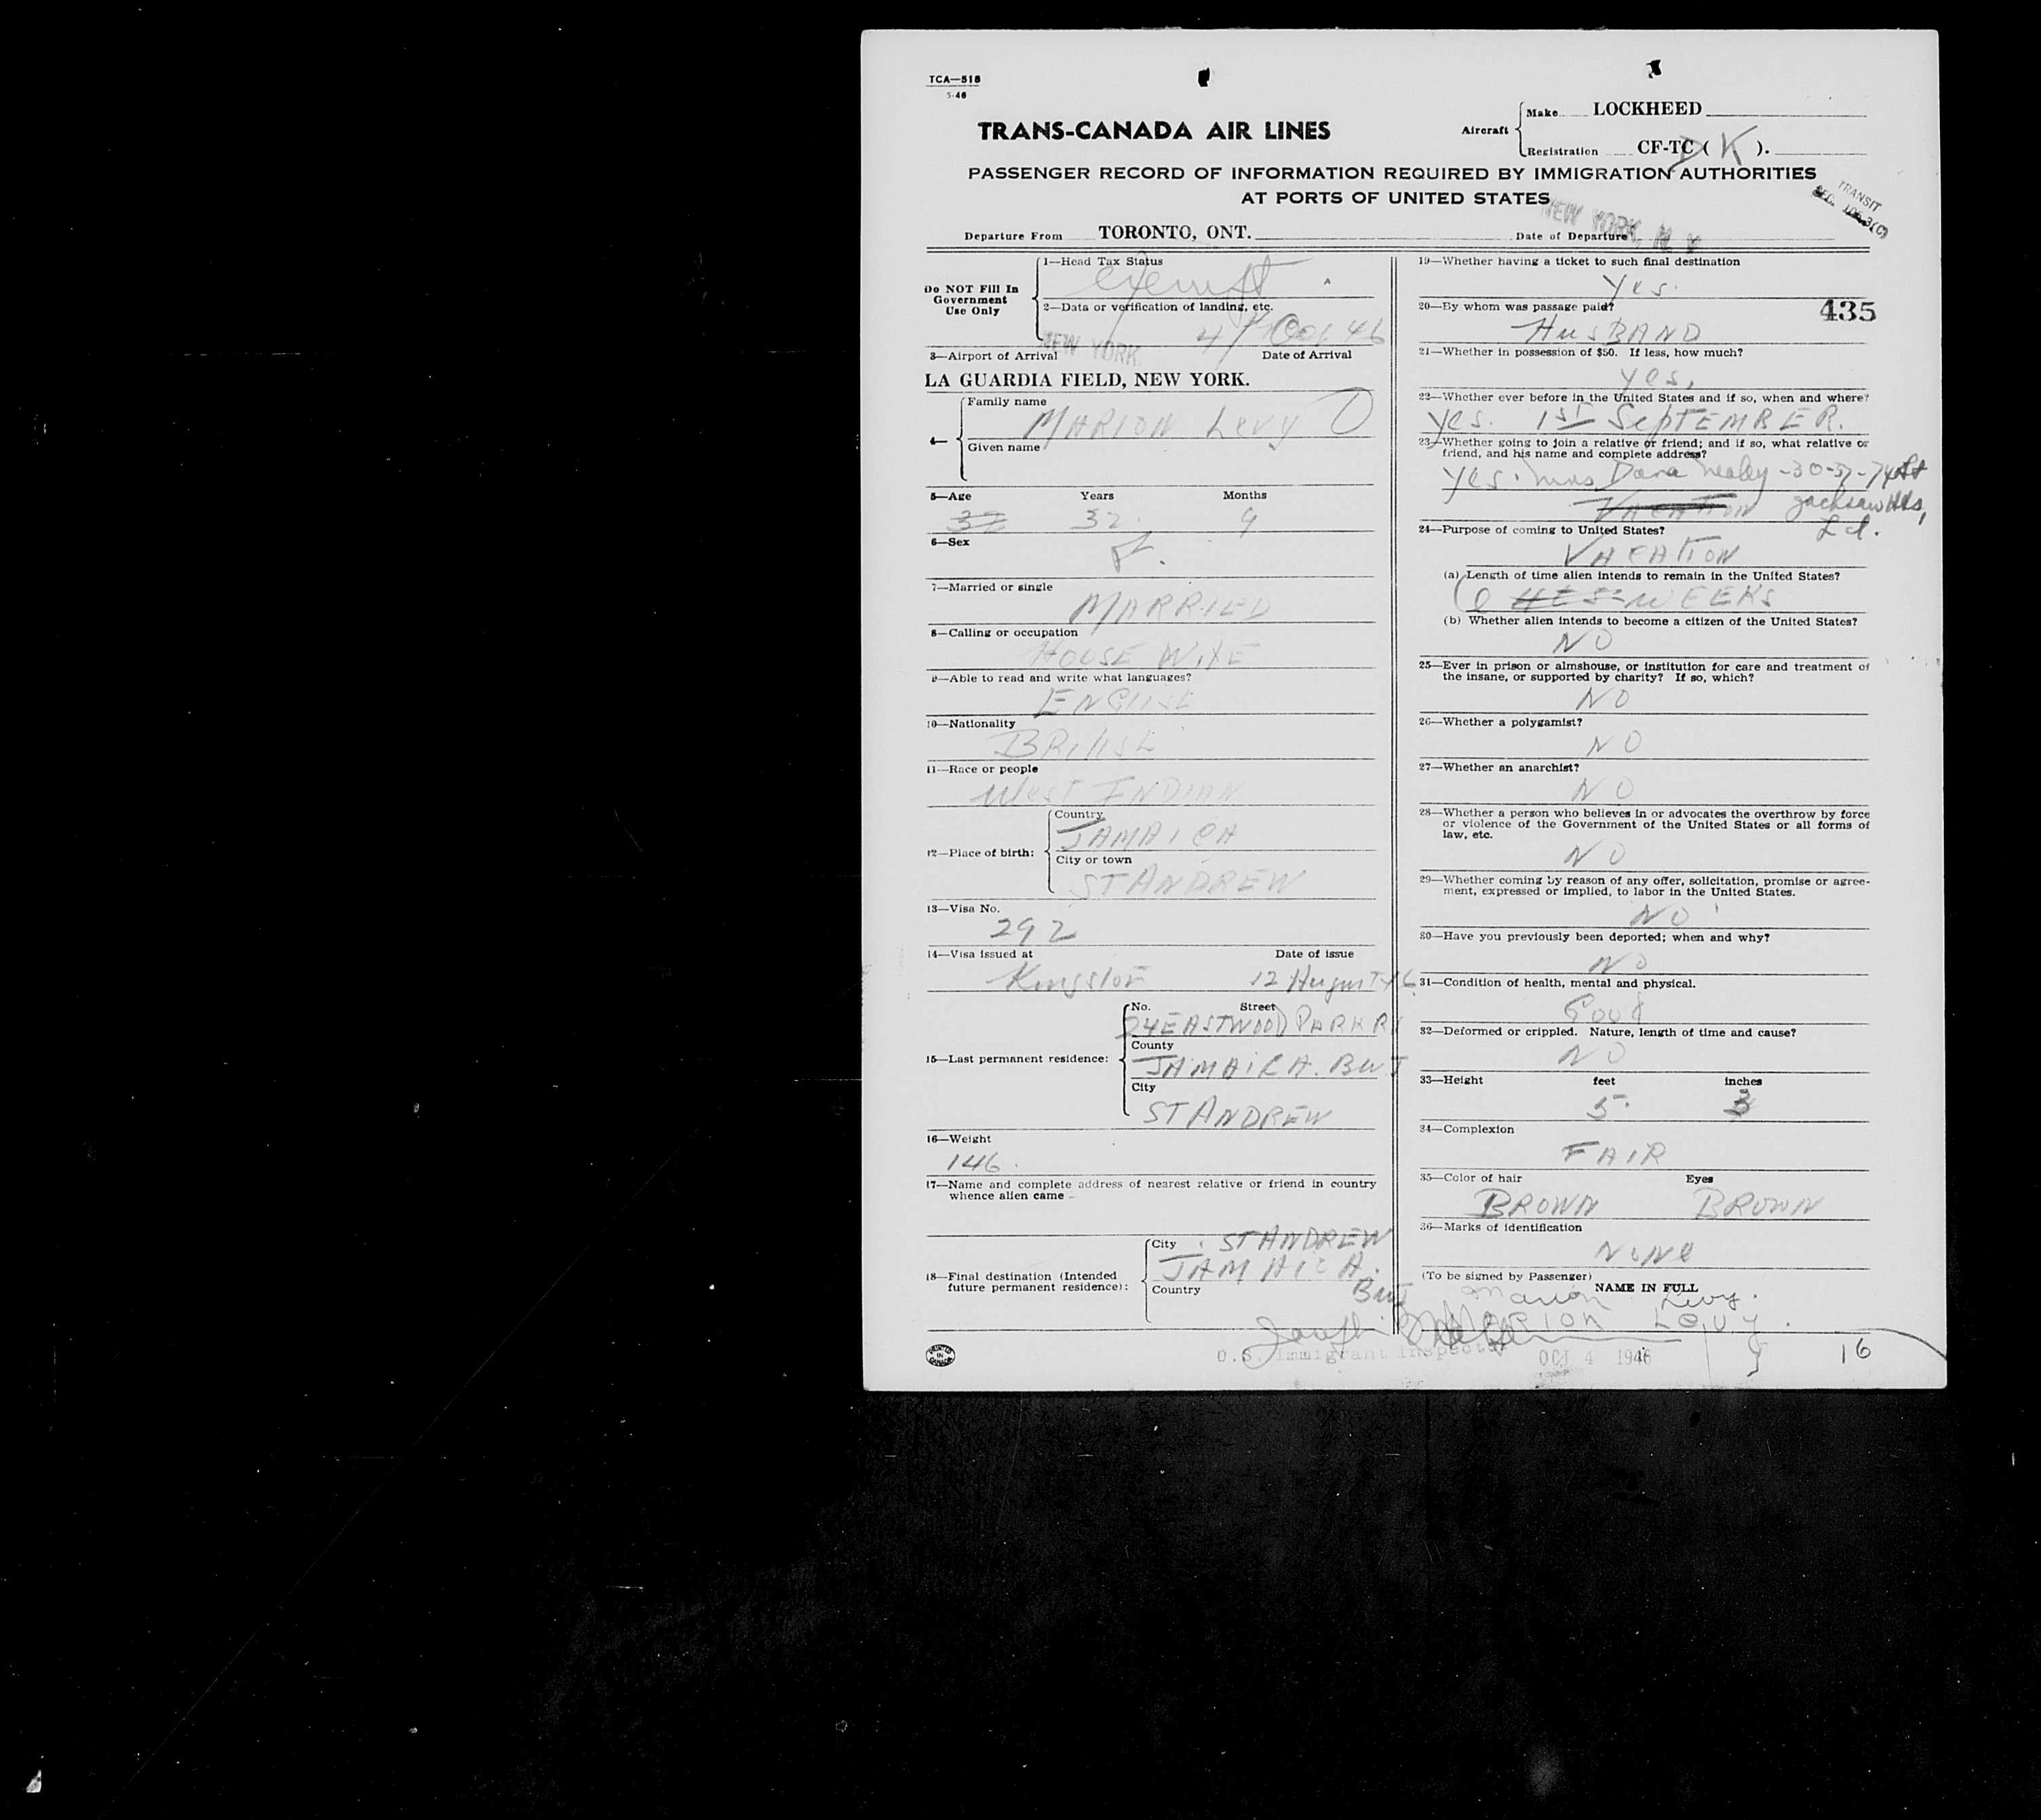 TCA—518
5-46
TRANS-CANADA AIR LINES
Aircraft
Make LOCKHEED
Registration CF-TC ( K ).
PASSENGER RECORD OF INFORMATION REQUIRED BY IMMIGRATION AUTHORITIES
AT PORTS OF UNITED STATES
TRANSIT
SEC.
NEW YORK, N. Y.
Departure From TORONTO, ONT. Date of Departure
Do NOT Fill In Government Use Only
1—Head Tax Status
exempt
2—Data or verification of landing, etc.
NEW YORK 4 Oct 46
3—Airport of Arrival Date of Arrival
LA GUARDIA FIELD, NEW YORK.
4—
Family name
MARION Levy
Given name
5—Age Years Months
32 32 9
6—Sex
f.
7—Married or single
MARRIED
8—Calling or occupation
HOUSE WIFE
9—Able to read and write what languages?
ENGLISH
10—Nationality
BRITISH
11—Race or people
West INDIAN
12—Place of birth:
Country
JAMAICA
City or town
ST ANDREW
13—Visa No.
292
14—Visa issued at Date of issue
Kingston 12 August 46
15—Last permanent residence:
No. Street
24 EASTWOOD PARK R
County
JAMAICA. BWI
City
ST ANDREW
16—Weight
146.
17—Name and complete address of nearest relative or friend in country
whence alien came
18—Final destination (Intended
future permanent residence):
City ST ANDREW
JAMAICA.
Country BWI
PRINTED IN CANADA
19—Whether having a ticket to such final destination
Yes.
20—By whom was passage paid?
435
HUSBAND
21—Whether in possession of $50. If less, how much?
yes,
22—Whether ever before in the United States and if so, when and where?
Yes. 1ST SepTEMBER.
23—Whether going to join a relative or friend; and if so, what relative or
friend, and his name and complete address?
Yes. Mrs 74 St
VACATION Jackson Hts,
L.I.
24—Purpose of coming to United States?
VACATION
(a) Length of time alien intends to remain in the United States?
6 WEEKS
(b) Whether alien intends to become a citizen of the United States?
NO
25—Ever in prison or almshouse, or institution for care and treatment of
the insane, or supported by charity? If so, which?
NO
26—Whether a polygamist?
NO
27—Whether an anarchist?
NO
28—Whether a person who believes in or advocates the overthrow by force
or violence of the Government of the United States or all forms of
law, etc.
NO
29—Whether coming by reason of any offer, solicitation, promise or agree-
ment, expressed or implied, to labor in the United States.
NO
30—Have you previously been deported; when and why?
NO
31—Condition of health, mental and physical.
Good
32—Deformed or crippled. Nature, length of time and cause?
NO
33—Height feet inches
5. 3
34—Complexion
FAIR
35—Color of hair Eyes
BROWN BROWN
36—Marks of identification
NONe
(To be signed by Passenger)
NAME IN FULL
Marion Levy.
MARION Levy.
Joseph
U.S. Immigrant Inspector OCT 4 1946
16